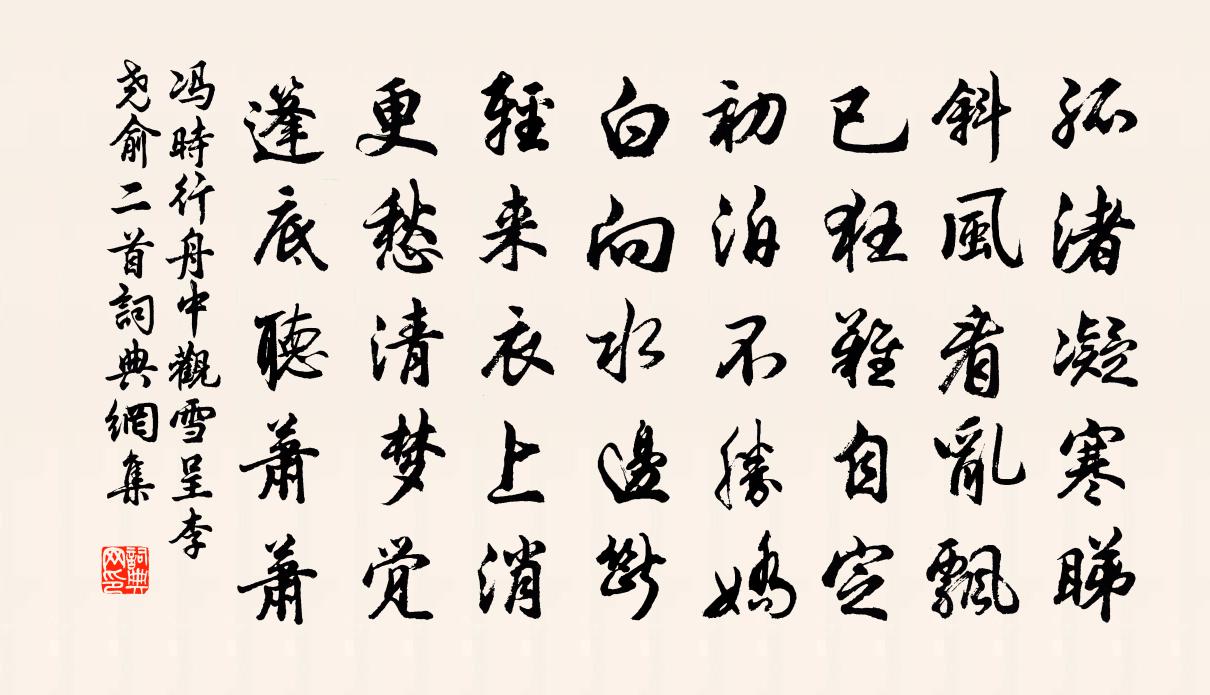 孤渚凝寒睇
斜風看亂飄
已狂難自定
初泊不勝嬌
白向水邊斷
輕来衣上消
更愁清梦觉
蓬底聽蕭蕭
冯時行舟中觀雪呈李
尧俞二首詞典網集
詞典
网印